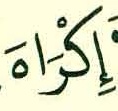 إِكْرَاهَ